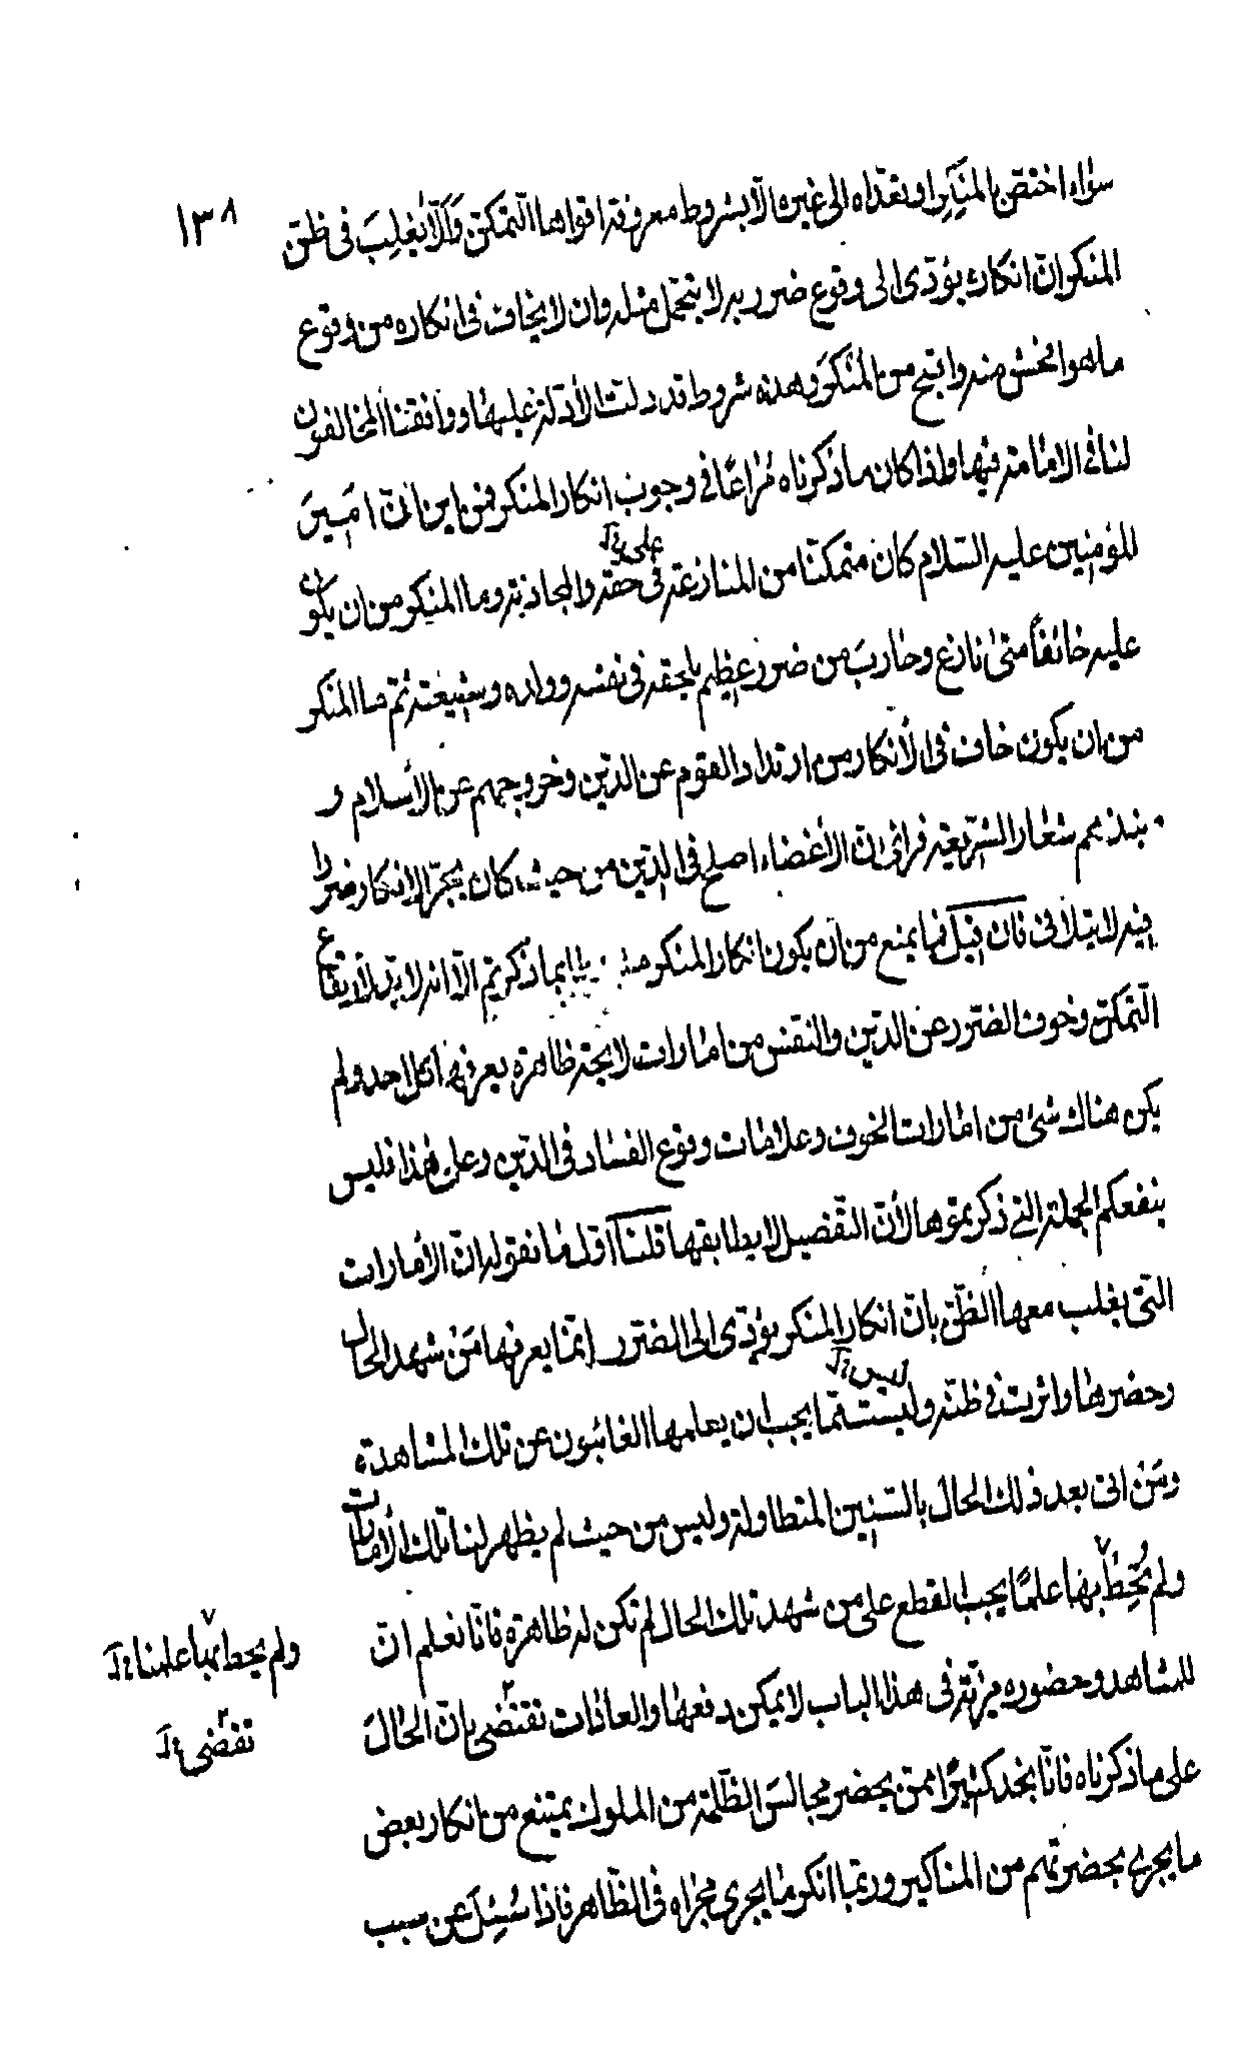 ١٣٨
سواء اختص بالمنكر او تعداه الى غيره الا بشروط معروفة اقواها التمكن وألّا يغلب فى ظن
المنكر ان انكاره يؤدى الى وقوع ضرر به لا يتحمل مثله وان لا يخاف فى انكاره من وقوع
ما هو افحش منه واقبح من المنكر وهذه شروط قد دلت الأدلة عليها ووافقنا المخالفون
لنا فى الامامة فيها واذا كان ما ذكرناه مراعا فى وجوب انكار المنكر فمن اين انّ امير
المؤمنين عليه السلام كان متمكنا من المنازعة فى حقه والمجاذبة وما المنكر من ان يكون
على خ
عليه خائفاً متى نازع وحارب من ضرر عظيم يلحقه فى نفسه وولده وشيعته ثم ما المنكر
من ان يكون خاف فى الأنكار من ارتداد القوم عن الدين وخروجهم عن الأسلام و
نبذهم شعار الشريعة فرأى ان الأغضاء اصلح فى الدين من حيث كان يجرّ الانكار ضررا
فيه لا يتلافى فان قيل فما يمنع من ان يكون انكار المنكر بما ذكرتم الا انه لا بد لارتفاع
التمكن وخوف الضرر عن الدين والنفس من امارات لايحة ظاهرة يعرفها كل احد ولم
يكن هناك شئ من امارات الخوف وعلامات وقوع الفساد فى الدين وعلى هذا فليس
ينفعكم الجملة التى ذكرتموها لأن التفصيل لا يطابقها قلنا اول ما نقوله ان الأمارات
التى يغلب معها الظن بان انكار المنكر يؤدى الى الضرر انما يعرفها من شهد الحال
وحضرها واثرت فى ظنه وليست مما يجب ان يعلمها الغائبون عن تلك المشاهدة
ليس خ
ومن اتى بعد ذلك الحال بالسنين المتطاولة وليس من حيث لم يظهر لنا تلك الأمارات
ولم نُحِط بها علمًا يجب القطع على من شهد تلك الحال لم تكن له ظاهرة فانا نعلم ان
ولم يحط بها علمنا خ
للمشاهد وحضوره مزية فى هذا الباب لا يمكن دفعها والعادات تقتضى بان الحال
تقضى خ
على ما ذكرناه فانّا نجد كثيرًا ممن يحضر مجالس الظلمة من الملوك يمتنع من انكار بعض
ما يجرى بحضرتهم من المناكير وربما انكر ما يجرى مجراه فى الظاهر فاذا سُئِل عن سبب